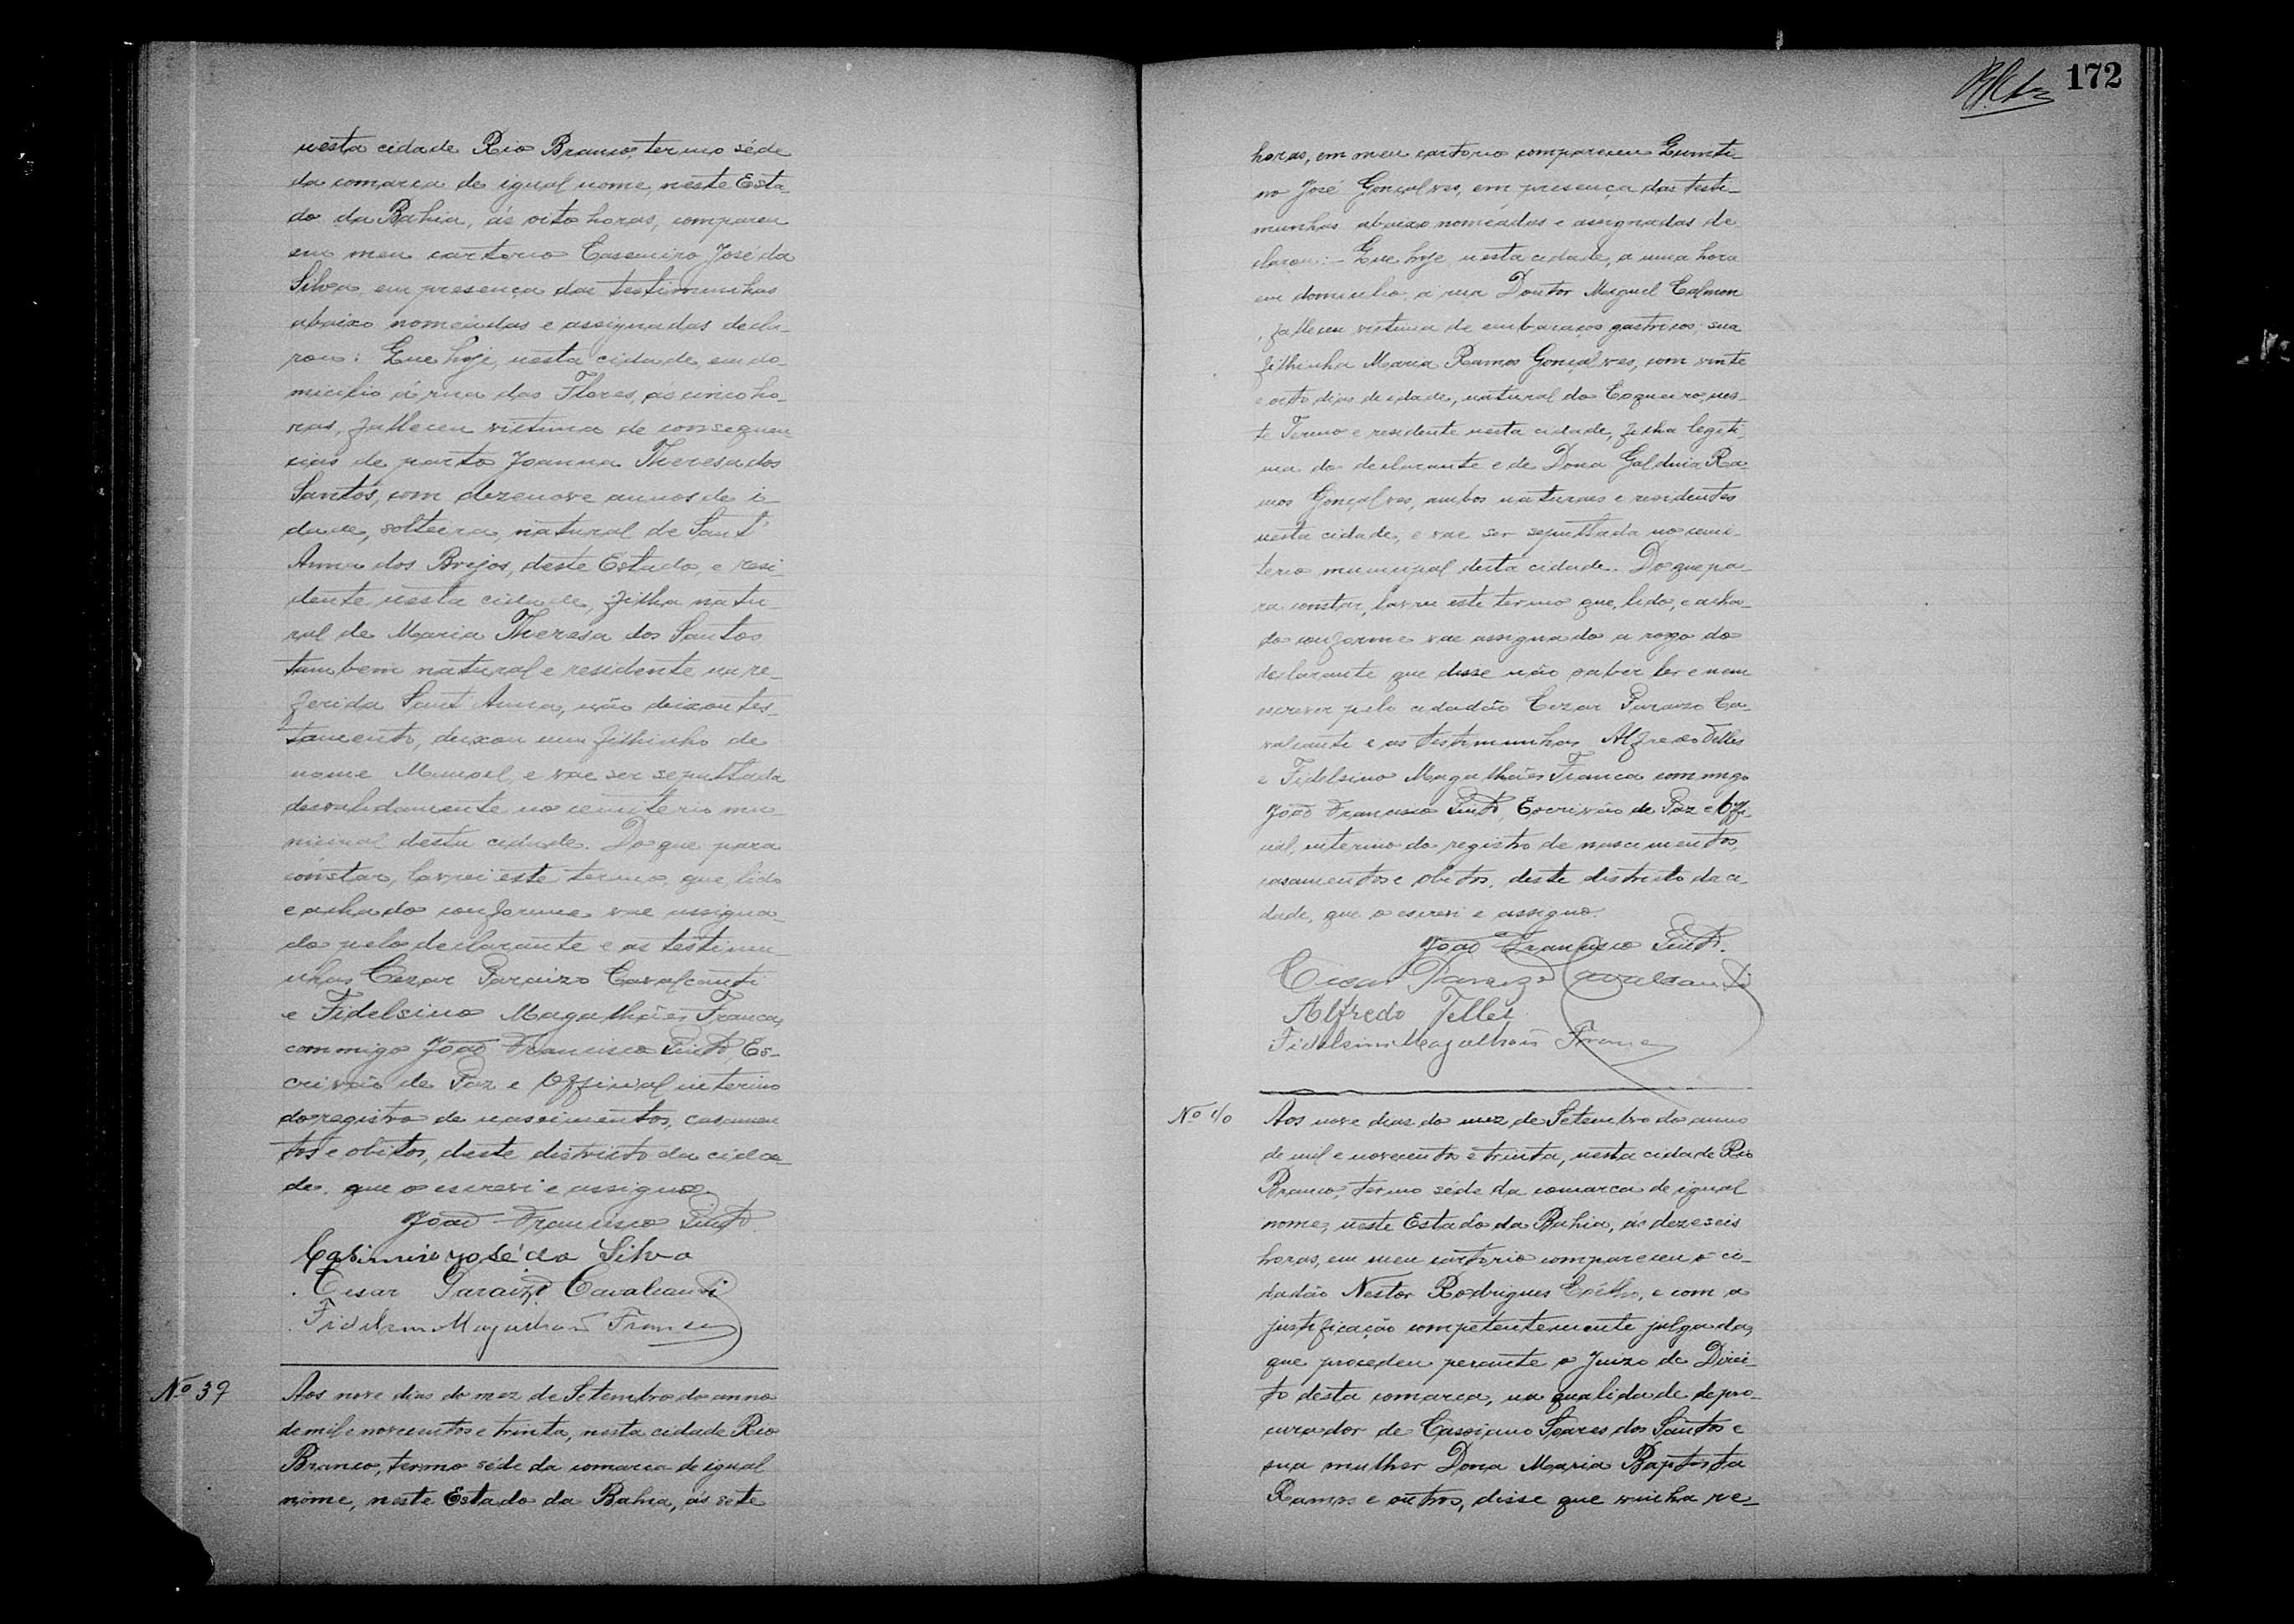 nesta cidade Rio Branco, termo séde
da comarca de igual nome, neste Esta-
do da Bahia, ás oito horas, compareu
em meu cartorio Casemiro José da
Silva, em presença das testimunhas
abaixo nomeadas e assignadas decla-
rou: Que hoje, nesta cidade, em do-
micilio á rua das Flores, ás cinco ho-
ras, falleceu victima de consequen-
cias de parto Joanna Theresa dos
Santos, com dezenove annos de i-
dade, solteira, natural de Sant'
Anna dos Brejos, deste Estado, e resi-
dente nesta cidade, filha natu-
ral de Maria Theresa dos Santos
tambem natural e residente na re-
ferida Sant'Anna, não deixou tes-
tamento, deixou um filhinho de
nome Manoel, e vae ser sepultada
desvalidamente no cemiterio mu-
nicipal desta cidade. Do que para
constar, lavrei este termo, que, lido
e achado conforme vae assigna-
do pelo declarante e as testimu-
nhas Cezar Paraizo Cavalcanti
e Fidelsino Magalhães Franca,
commigo João Francisco Pinto, Es-
crivão de Paz e Official interino
do registro de nascimentos, casamen-
tos e obitos, deste districto da cida-
de, que o escrevi e assigno.
João Francisco Pinto
Casimiro José da Silva
Cesar Paraizo Cavalcanti
Fidelsino Magalhães Franca
Nº 39
Aos nove dias do mez de Setembro do anno
de mil e novecentos e trinta, nesta cidade Rio
Branco, termo séde da comarca de igual
nome, neste Estado da Bahia, ás sete
172
horas, em meu cartorio compareceu
no José Gonçalves, em presença das testi-
munhas abaixo nomeadas e assignadas de
clarou:- Que hoje, nesta cidade, a uma hora
em domicilio, á rua Doutor Miguel Calmon
, falleceu victima de embaraços gastricos, sua
filhinha Maria Ramos Gonçalves, com vinte
e oito dias de idade, natural do Coqueiro, nes-
te Termo e residente nesta cidade, filha legiti-
ma do declarante e de Dona Galdina Ra-
mos Gonçalves, ambos naturaes e residentes
nesta cidade, e vae ser sepultada no cemi-
terio municipal desta cidade. Do que pa-
ra constar, lavrei este termo que, lido, e acha-
do conforme vae assignado a rogo do
declarante que disse não saber ler e nem
escrever pelo cidadão Cezar Paraizo Ca-
valcante e as testimunhas Alfredo Telles
e Fidelsino Magalhães Franca commigo
João Francisco Pinto, Escrivão de Paz e Offi-
cial interino do registro de nascimentos,
casamentos e obitos, deste districto da ci-
dade, que o escrevi e assigno.
João Francisco Pinto.
Cesar Paraizo Cavalcanti
Alfredo Telles
Fidelsino Magalhães Franca
Nº 40
Aos nove dias do mez de Setembro do anno
de mil e novecentos e trinta, nesta cidade Rio
Branco, termo séde da comarca de igual
nome, neste Estado da Bahia, ás dezeseis
horas, em meu cartorio compareceu o ci-
dadão Nestor Rodrigues Coêlho, e com a
justificação competentemente julgada,
que procedeu perante o Juizo de Direi-
to desta comarca, na qualidade de pro-
curador de Cassiano Soares dos Santos e
sua mulher Dona Maria Baptista
Ramos e outros, disse que vinha re-